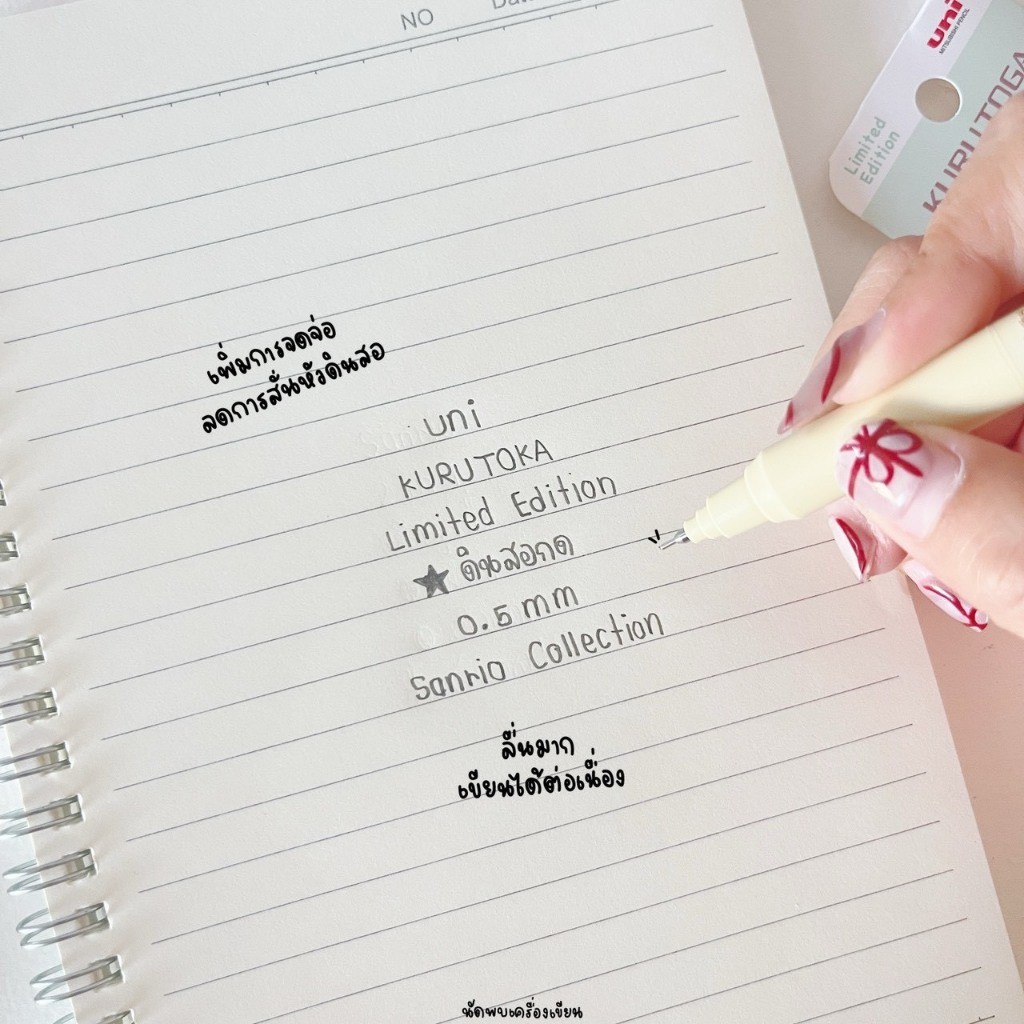 NO
uni
MITSUBISHI PENCIL
Limited
Edition
KURUTOGA
เพิ่มการจดจ่อ
ลดการสั่นหัวดินสอ
uni
KURUTOKA
Limited Edition
★ ดินสอกด
0.5 mm
Sanrio Collection
ลื่นมาก
เขียนได้ต่อเนื่อง
นัดพบเครื่องเขียน